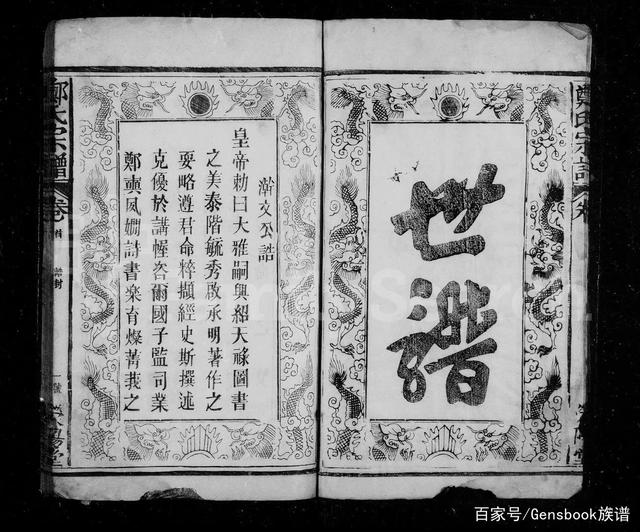 鄭氏宗譜
世譜
澣文公誥
皇帝勅曰大雅嗣興紹天祿圖書
之美泰階毓秀啟承明著作之
要略遵君命粹擷經史斯撰述
克優於講幄咨爾國子監司業
鄭奭夙嫺詩書樂育燦菁莪之
鄭氏宗譜
卷首
誥封
一號
滎陽堂
百家号/Gensbook族谱